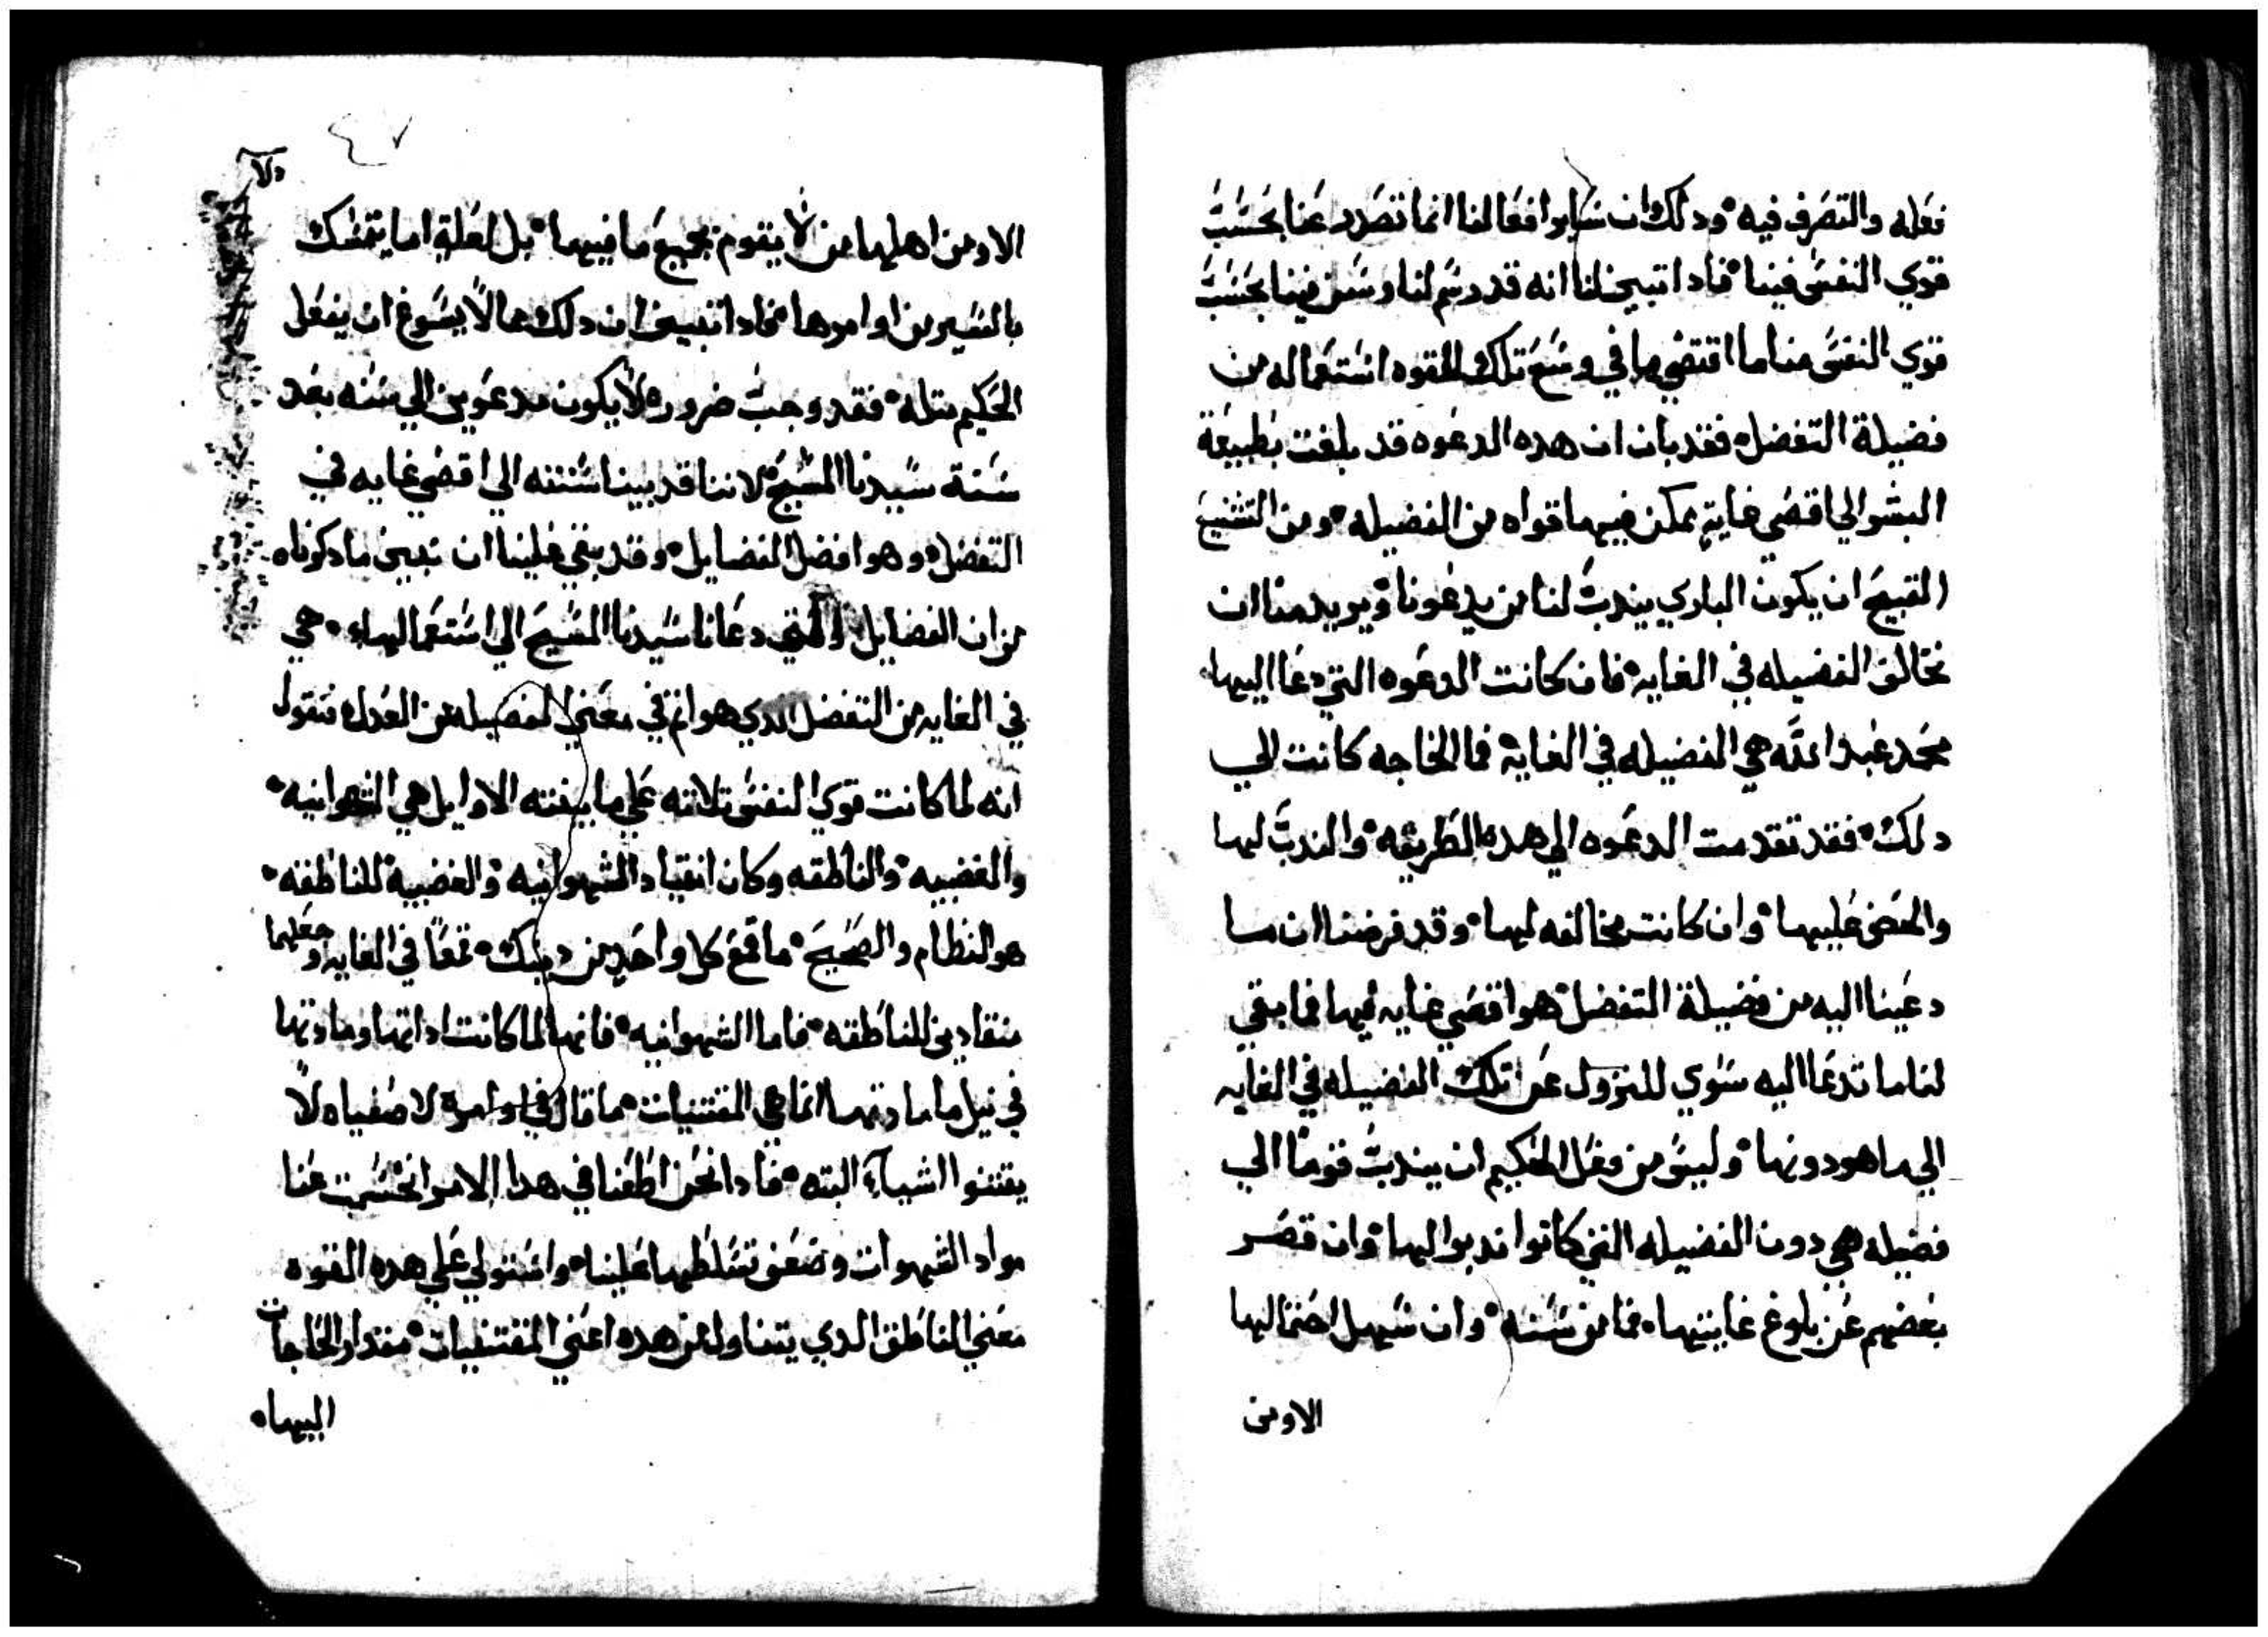 فعله والتصرف فيه ودلك ان ساير افعالنا انما تصدر عنا بحسب
قوي النفس فينا فادا تبين لنا انه قد رسم لنا وسن فينا بحسب
قوي النفس منا ما اقتضي ما في وسع تلك القوه استعماله من
فضيلة التفضل فقد بان ان هده الدعوه قد بلغت بطبيعة
البشر الي اقصي غاية يمكن فيها قواه من الفضيله ومن الشنيع
القبيح ان يكون الباري يندب لنا من يدعونا ويريد منا ان
نخالف الفضيله في الغايه فان كانت الدعوه التي دعا اليها
محمد عبد الله هي الفضيله في الغاية فما الحاجه كانت الي
دلك فقد تقدمت الدعوه الي هده الطريقه والندب ليها
والحض عليها وان كانت مخالفه ليها وقد فرضنا ان ما
دعينا اليه من فضيلة التفضل هو اقصي غايه فيها فما بقي
لنا ما ندعا اليه سوي للنزول عن تلك الفضيله في الغايه
الي ما هو دونها وليس من فعل الحكيم ان يندب قوماً الي
فضيله هي دون الفضيله التي كانوا ندبوا اليها وان قصر
بعضهم عن بلوغ غايتها فما من سنه وان سهل احتمالها
الاومن
٤٧
الاومن اهلها من لا يقوم بجميع ما فيها بل لعلة اما يتمسك
باليسير من اوامرها فادا تبين ان دلك مما لا يسوغ ان يفعل
الحكيم متله فقد وجب ضروره الا يكون مدعوين الي سنه بعد
سنة سيدنا المسيح لاننا قد بينا سنته الي اقصي غايه في
التفضل وهو افضل الفضايل وقد بقي علينا ان نبين ما دكرناه
من ان الفضايل التي دعانا سيدنا المسيح الي استعمالها هي
في الغايه من التفضل الدي هو اتم في معني الفضيله من العدل فنقول
انه لما كانت قوي النفس تلاته علي ما بينته الاوايل هي الشهوانيه
والغضبيه والناطقه وكان انقياد الشهوانيه والغضبية للناطقه
هو النظام والصحيح ما قمع كل واحد من دينك قمعاً في الغايه وجعلهما
منقادين للناطقه فاما الشهوانيه فانها لما كانت اداتها ومادتها
في نيل ما مادتها انما هي المقتنيات ما قال في اوامره لاصفياه لا
يقتنوا اشياءً البته فادا نحن اطعنا في هدا الامر انحسمت عنا
مواد الشهوات وضعف تسلطها علينا واستولي علي هده القوه
معني الناطق الدي يتناول من هده اعني المقتنيات مقدار الحاجات
اليها